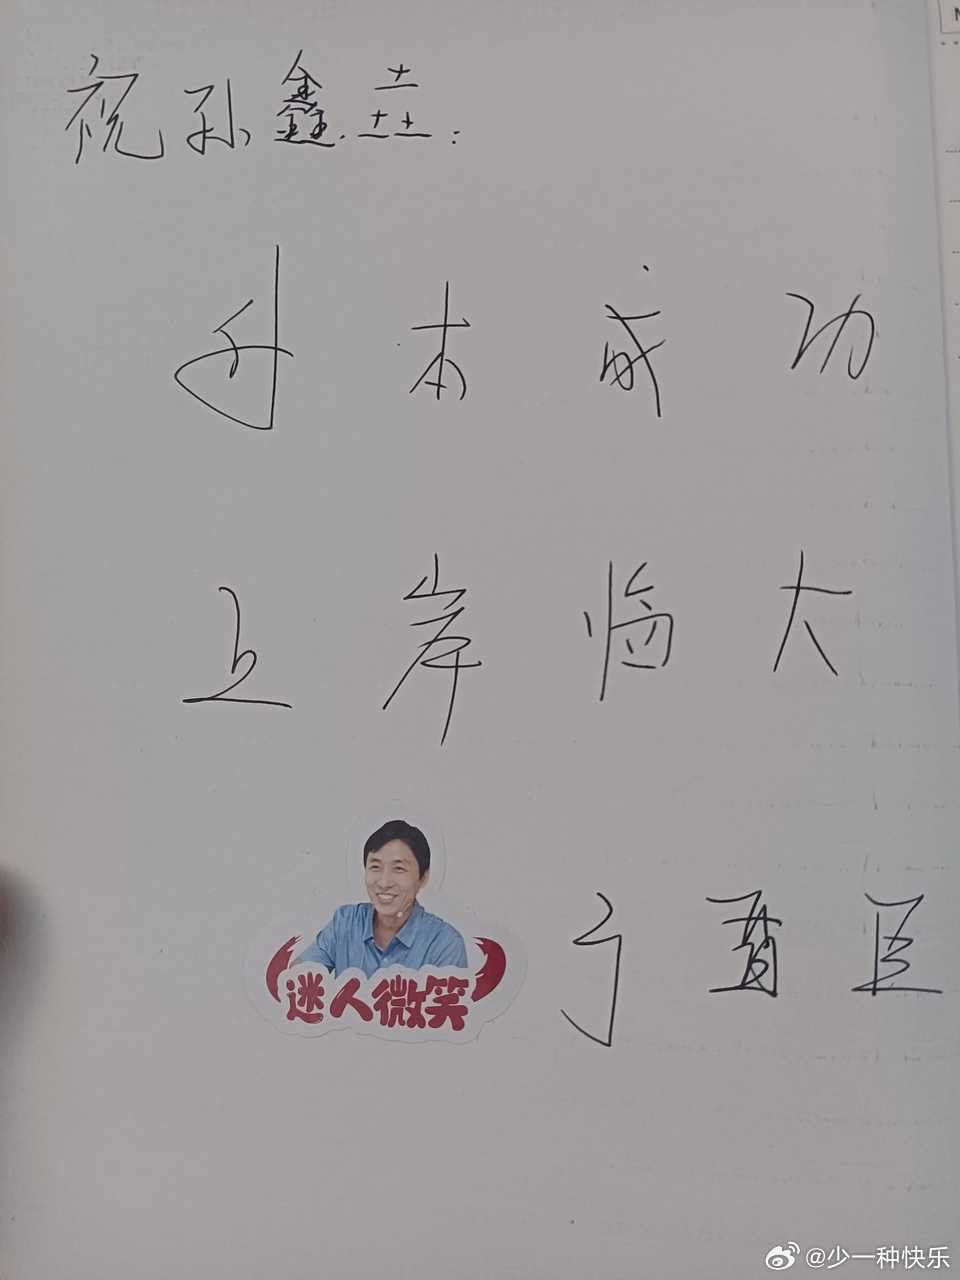 祝孙鑫垚:
升本成功
上岸临大
迷人微笑
@少一种快乐